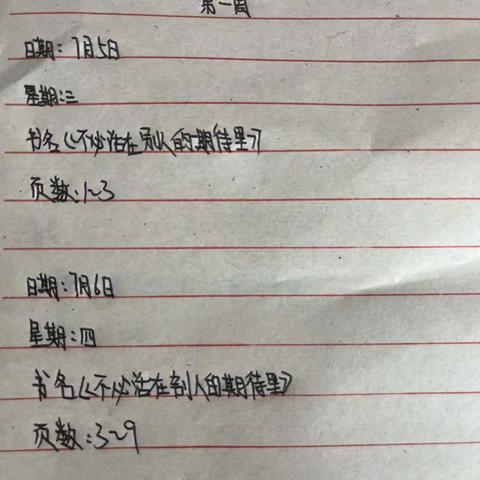 第一周
日期：7月5日
星期：三
书名《不必活在别人的期待里》
页数：1~3
日期：7月6日
星期：四
书名《不必活在别人的期待里》
页数：3~9